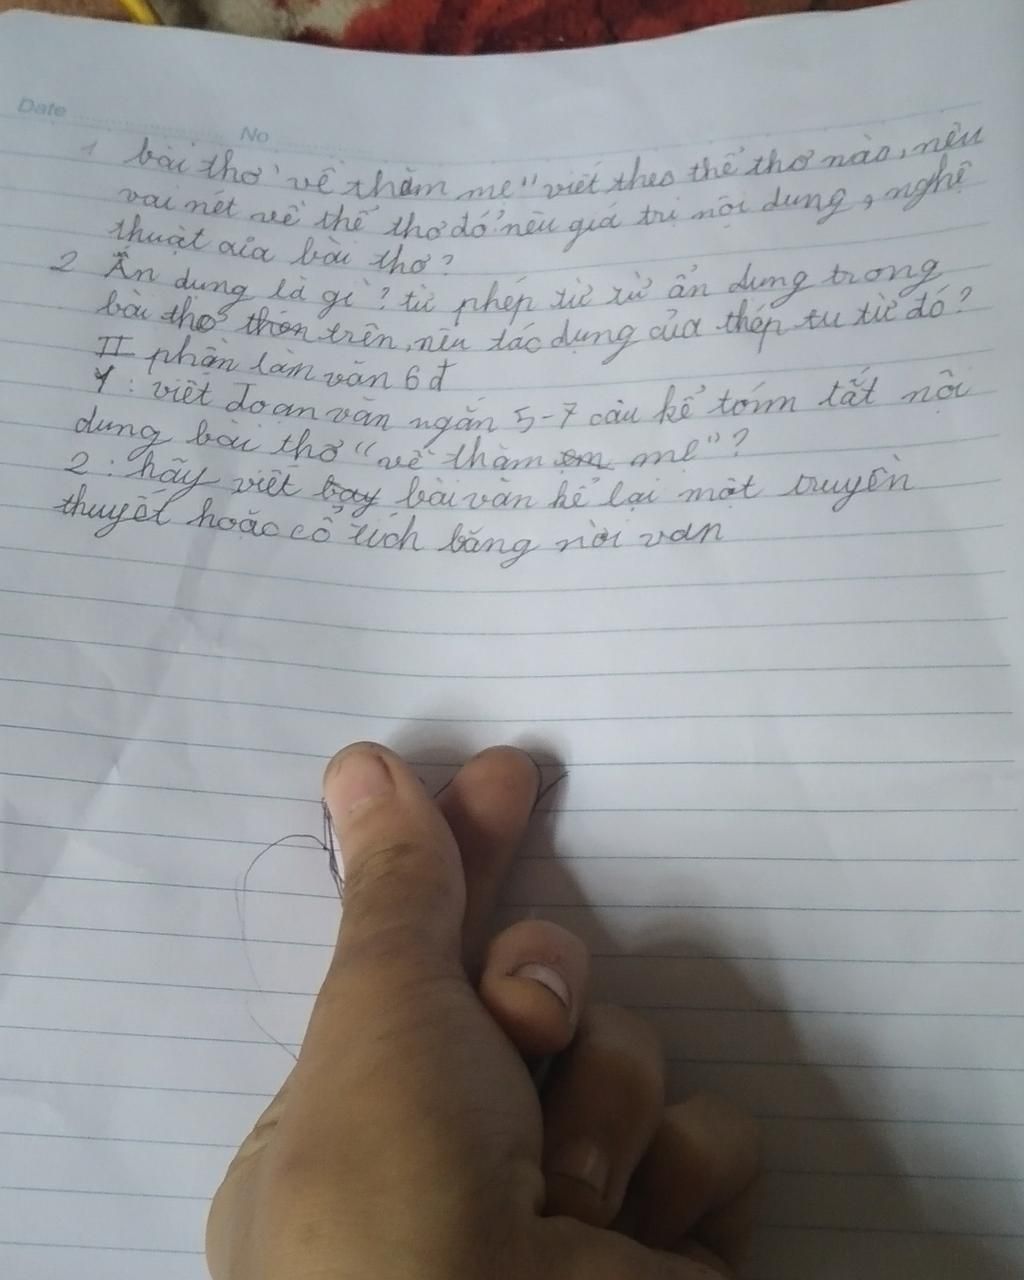 Date No
1 bài thơ "về thăm mẹ" viết theo thể thơ nào, nêu
vài nét về thể thơ đó? nêu giá trị nội dung, nghệ
thuật của bài thơ?
2 Ẩn dụng là gì? từ phép từ từ ẩn dụng trong
bài thơ trên, nêu tác dụng của thép tu từ đó?
II phần làm văn 6đ
1: viết đoạn văn ngắn 5-7 câu kể tóm tắt nội
dung bài thơ "về thăm em mẹ"?
2: hãy viết bay bài văn kể lại một truyền
thuyết hoặc cổ tích bằng nời văn